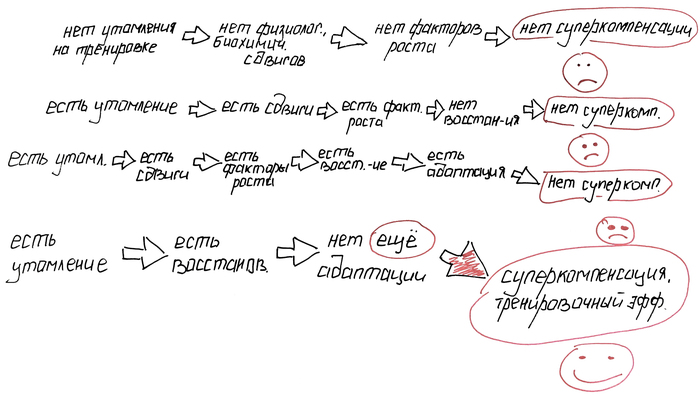 нет утомления
на тренировке
нет физиолог.,
биохимич.
сдвигов
нет факторов
роста
нет суперкомпенсации
есть утомление
есть сдвиги
есть факт.
роста
нет
восстан-ия
нет суперкомп.
есть утомл.
есть
сдвиги
есть
факторы
роста
есть
восст.-ие
есть
адаптация
нет суперкомп.
есть
утомление
есть
восстанов.
нет ещё
адаптации
суперкомпенсация,
тренировочный эфф.